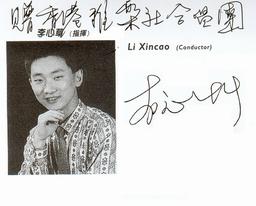 赠香港雅樂社合唱團
李心草 (指揮)
Li Xincao (Conductor)
李心草